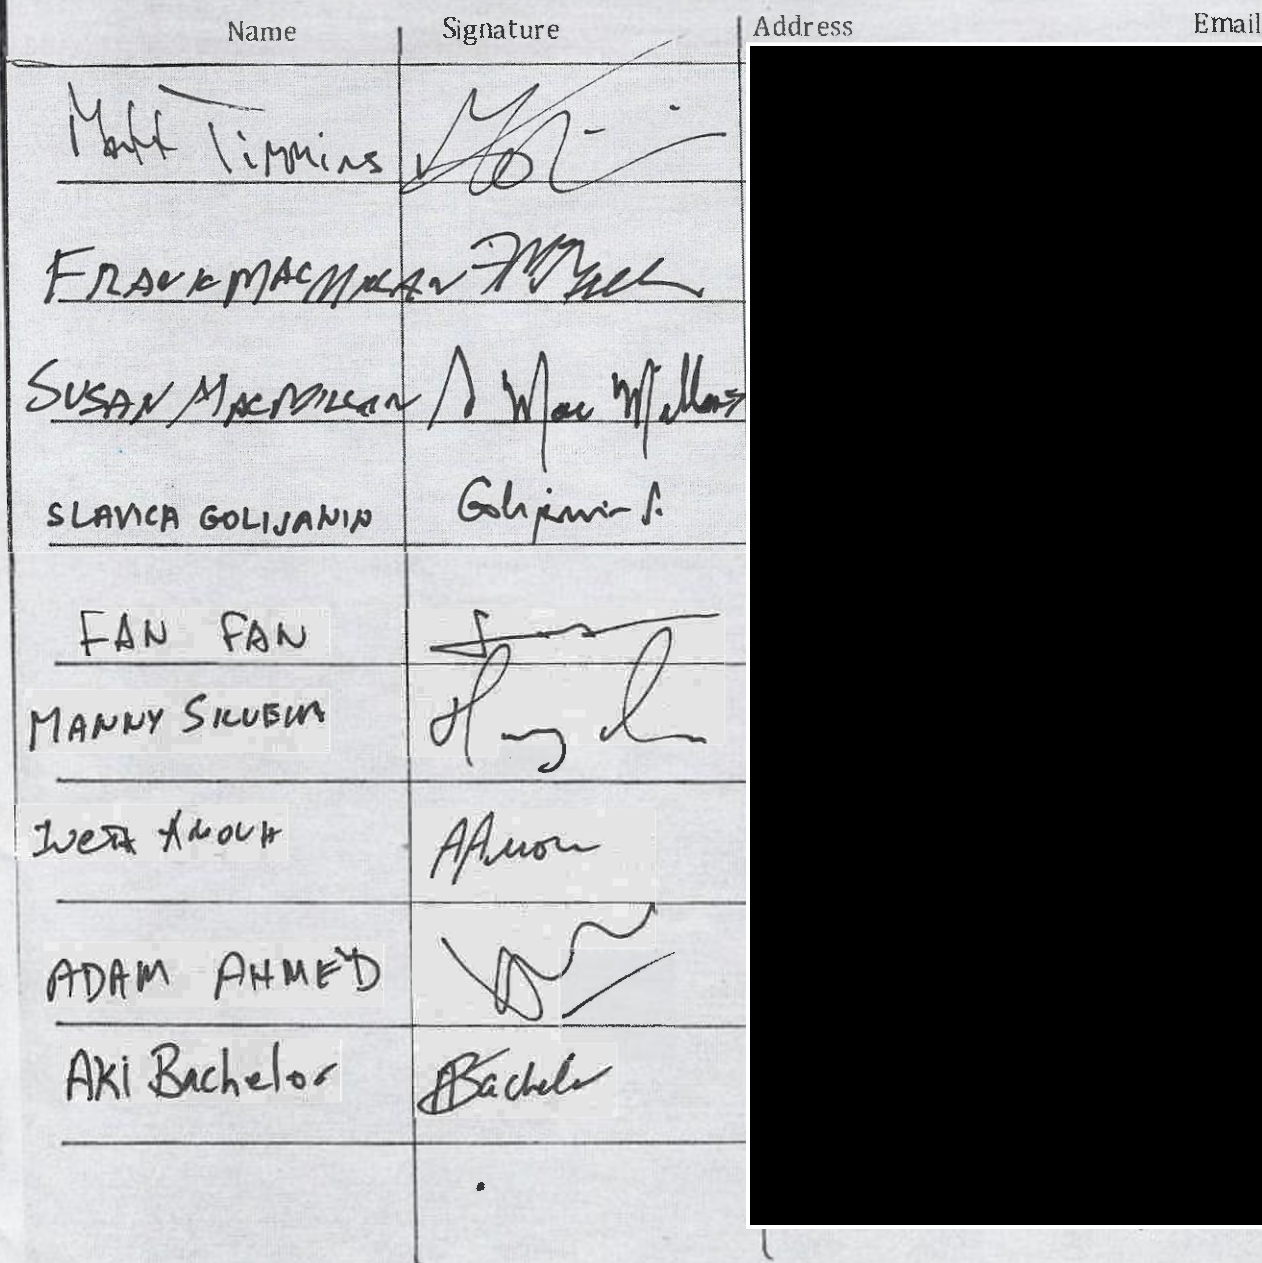 Name Signature Address Email
Matt Timmins
FRANK MACMILLAN
SUSAN MACMILLAN S Mac Millan
SLAVICA GOLIJANIN Golijanin S.
FAN FAN
MANNY
ADAM AHMED
AKi Bachelor ABachelor